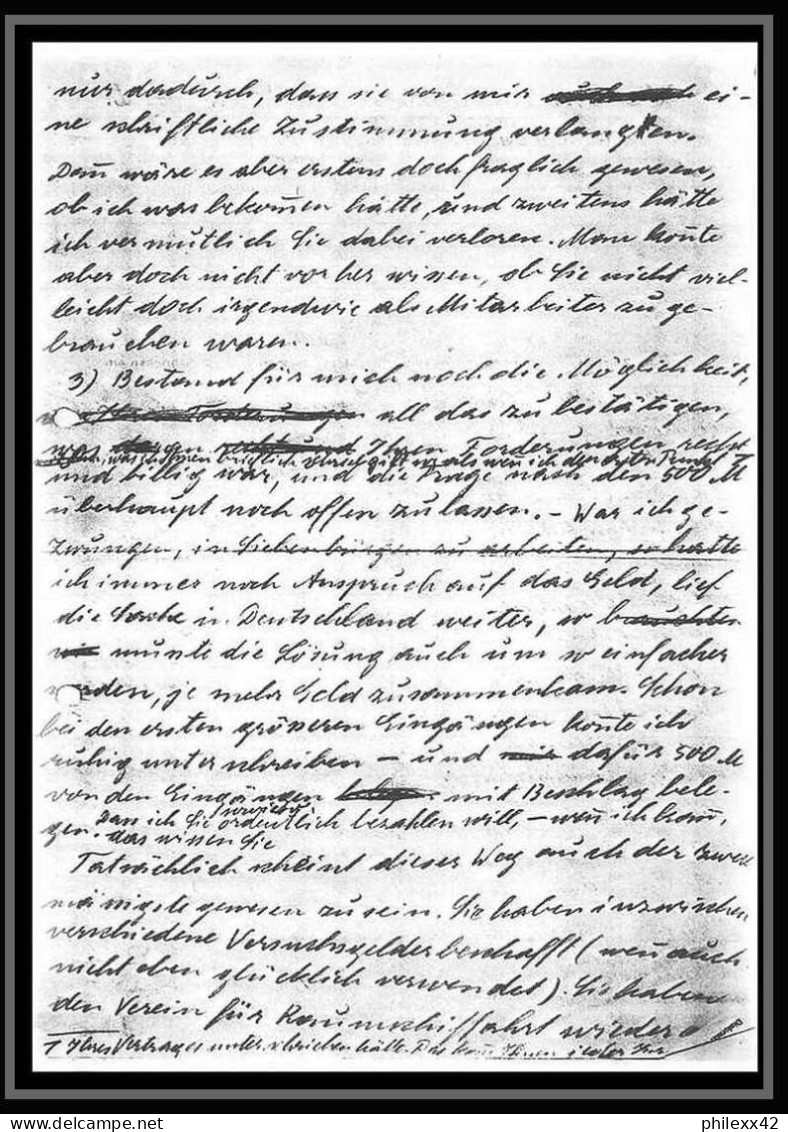 nur dadurch, dass sie von mir ei-
ne schriftliche Zustimmung verlangten.
Dañ wäre es aber erstens doch fraglich gewesen,
ob ich was bekom̃en hätte, und zweitens hätte
ich vermutlich Sie dabei verloren. Man koñte
aber doch nicht vorher wissen, ob Sie nicht viel-
leicht doch irgendwie als Mitarbeiter zu ge-
brauchen waren.
3) Bestand für mich noch die Möglichkeit,
all das zu bestätigen,
was an Ihren Forderungen recht
und billig war, und die Frage nach den 500 M
überhaupt noch offen zu lassen. - War ich ge-
zwungen, in Siebenbürgen zu arbeiten, so hatte
ich immer noch Anspruch auf das Geld, lief
die Sache in Deutschland weiter, so brauchten
musste die Lösung auch um so einfacher
werden, je mehr Geld zusammenkam. Schon
bei den ersten grösseren Eingängen koñte ich
ruhig unterschreiben - und dafür 500 M
von den Eingängen mit Beschlag bele-
gen. Dass ich Sie sowieso ordentlich bezahlen will, - weñ ich kañ,
das wissen Sie
Tatsächlich scheint dieser Weg auch der zweck
mässigste gewesen zu sein. Sie haben inzwischen
verschiedene Versuchsgelder beschafft (weñ auch
nicht eben glücklich verwendet). Sie haben
den Verein für Raumschiffahrt wieder
Ihres Vertrages unterschrieben hätte. Das kañ Ihnen jeder
delcampe.net
philexx42